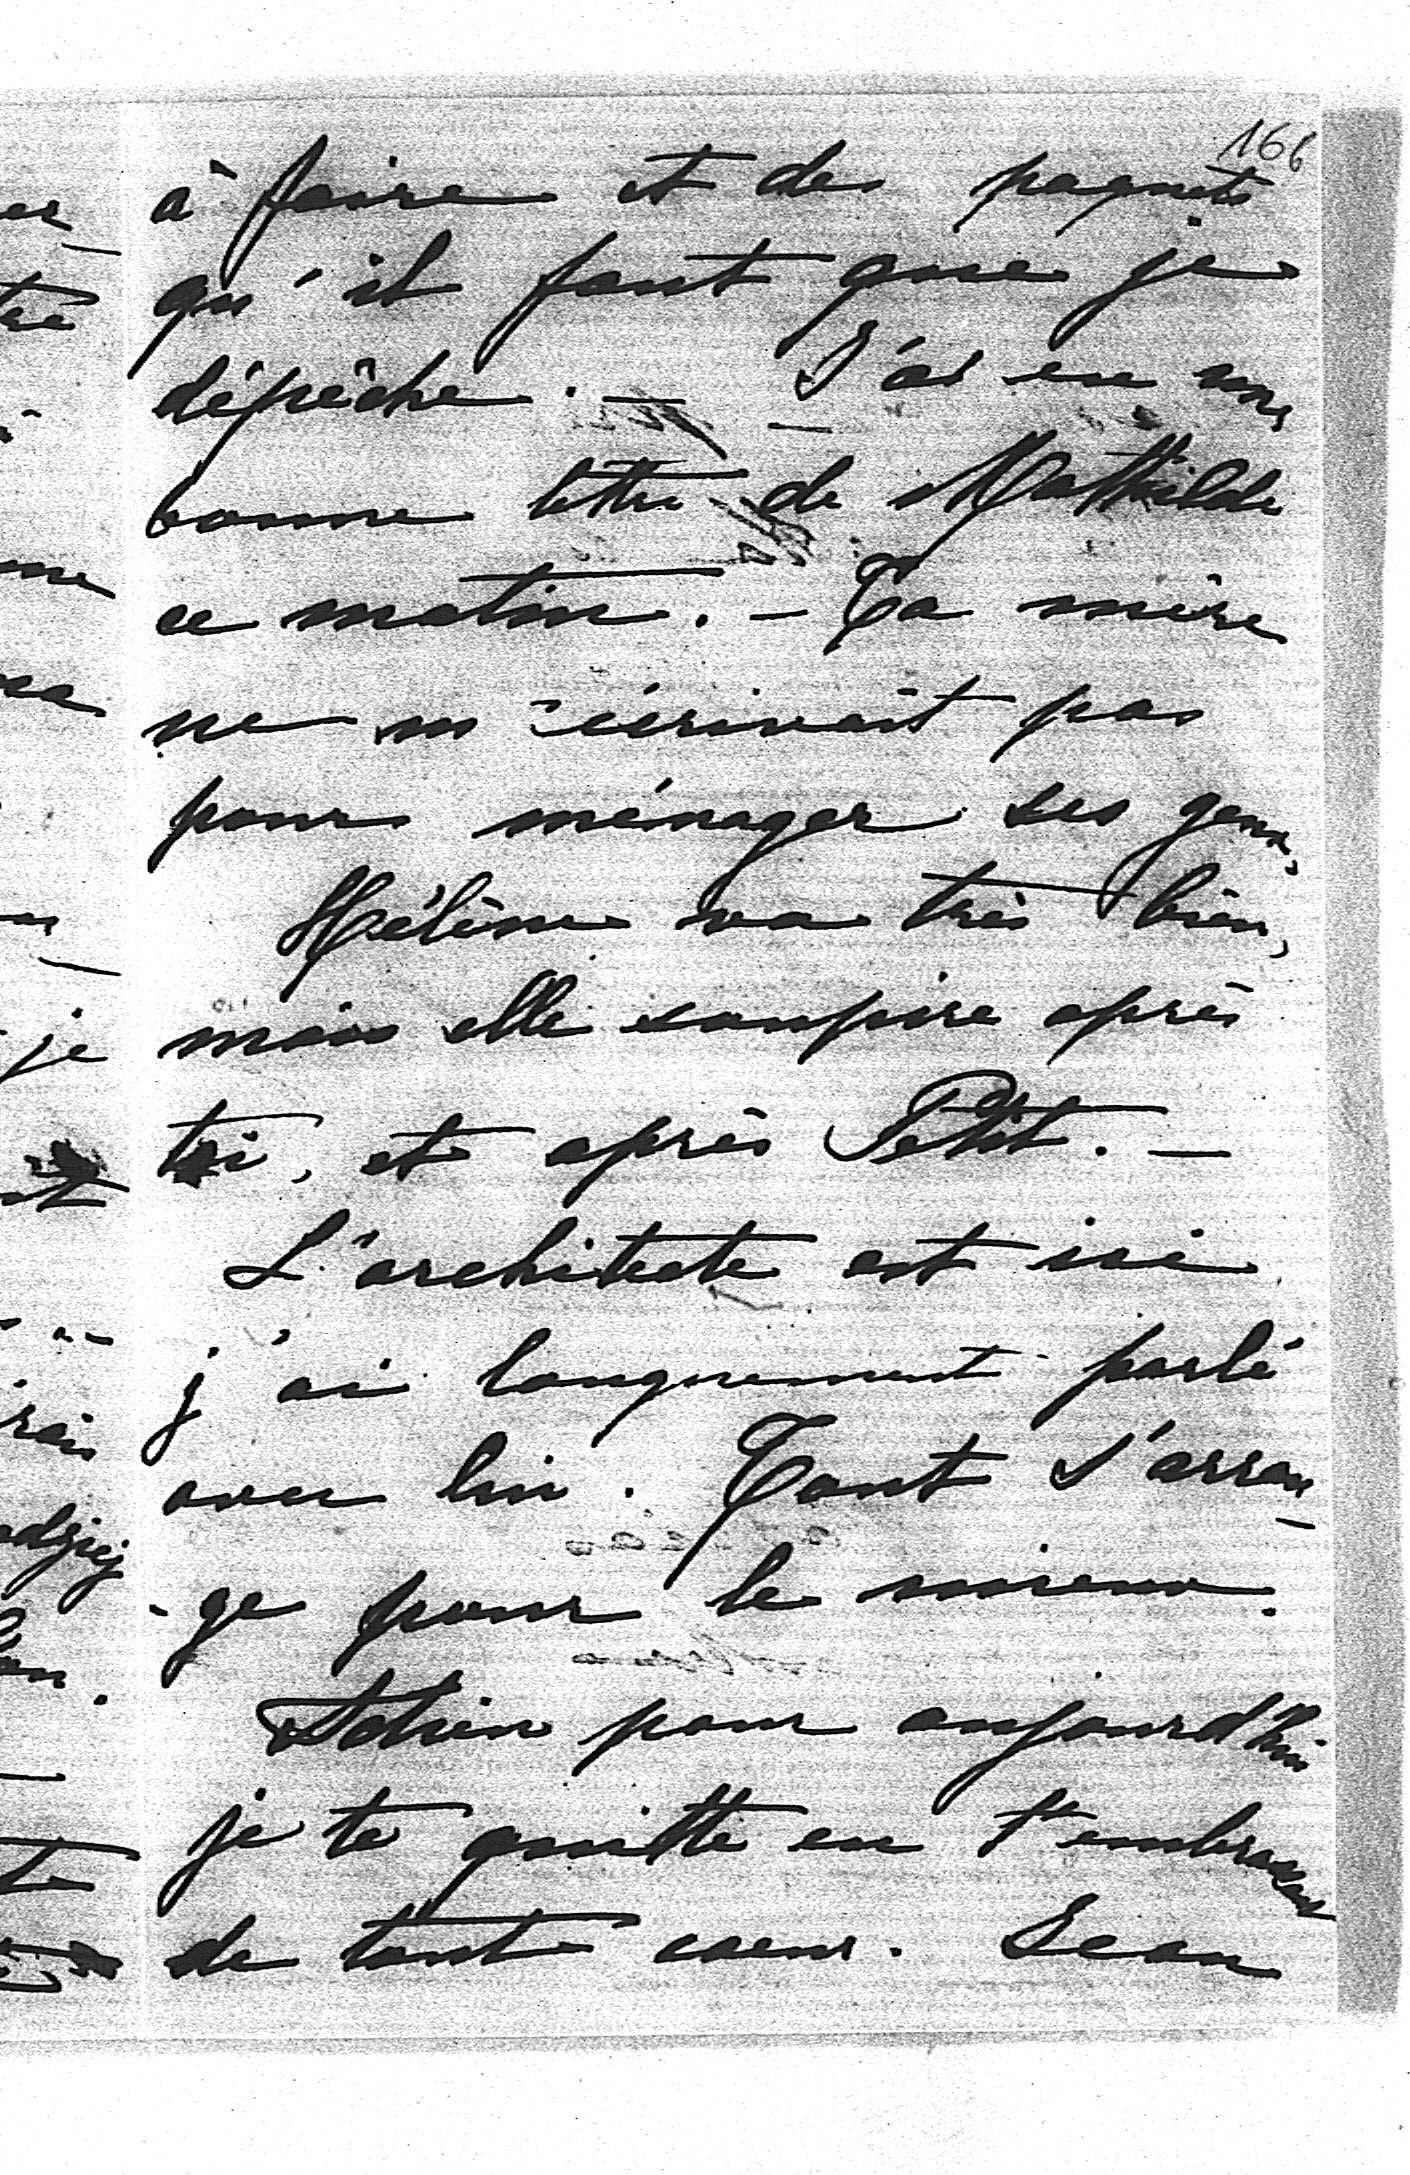 166
à faire et des paquets
qu'il faut que je
dépêche. — J'ai eu une
bonne lettre de Mathilde
ce matin. — Ta mère
ne m'écrivait pas
pour ménager ses yeux,
Hélène va très bien,
mais elle soupire après
toi, et après Petit. —
L'architecte est ici
j'ai longuement parlé
avec lui. Tout s'arran-
-ge pour le mieux.
Adieu pour aujourd'hui
je te quitte en t'embrassant
de tout coeur. Jean